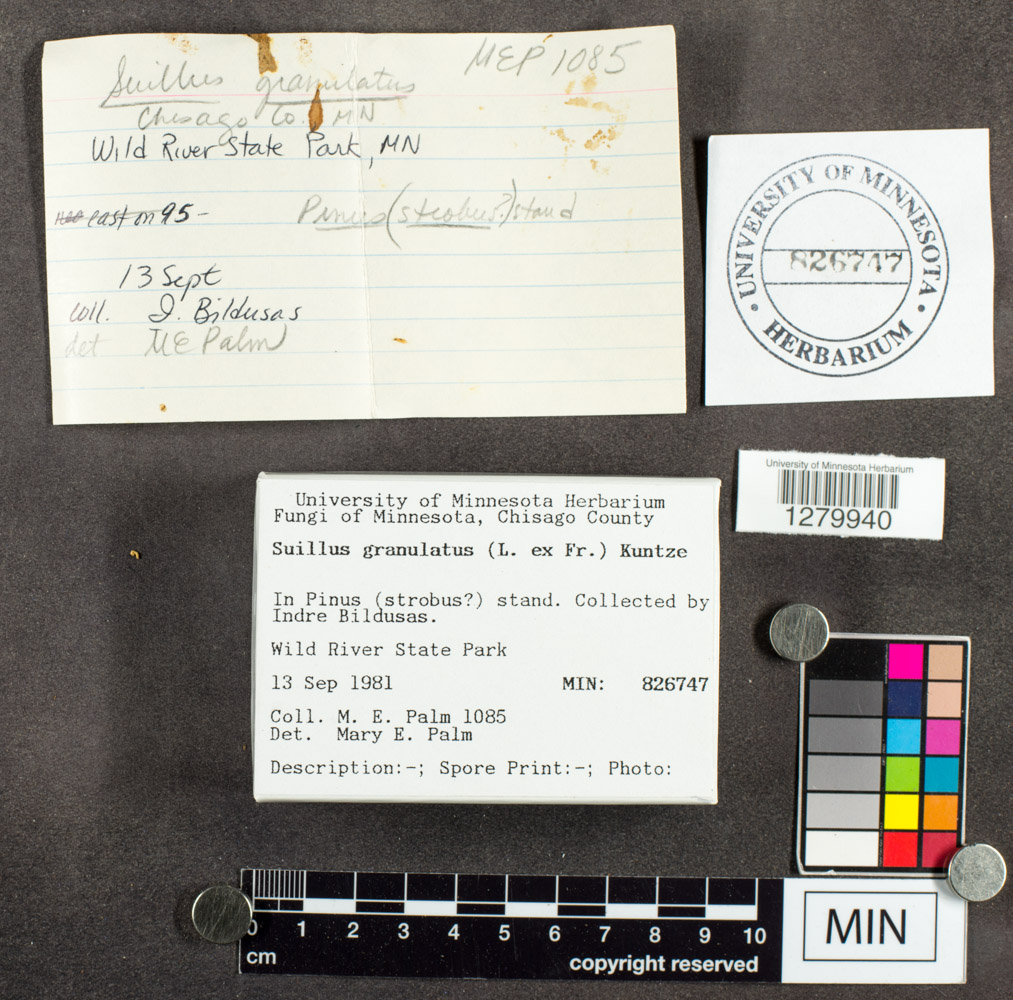 MEP 1085
Suillus granulatus
Chisago Co. MN
Wild River State Park, MN
east on 95 -
Pinus (strobus?) stand
13 Sept
coll. I. Bildusas
det ME Palm
UNIVERSITY OF MINNESOTA
826747
HERBARIUM
University of Minnesota Herbarium
1279940
University of Minnesota Herbarium
Fungi of Minnesota, Chisago County
Suillus granulatus (L. ex Fr.) Kuntze
In Pinus (strobus?) stand. Collected by
Indre Bildusas.
Wild River State Park
13 Sep 1981 MIN: 826747
Coll. M. E. Palm 1085
Det. Mary E. Palm
Description:-; Spore Print:-; Photo:
0 1 2 3 4 5 6 7 8 9 10
cm
copyright reserved
MIN